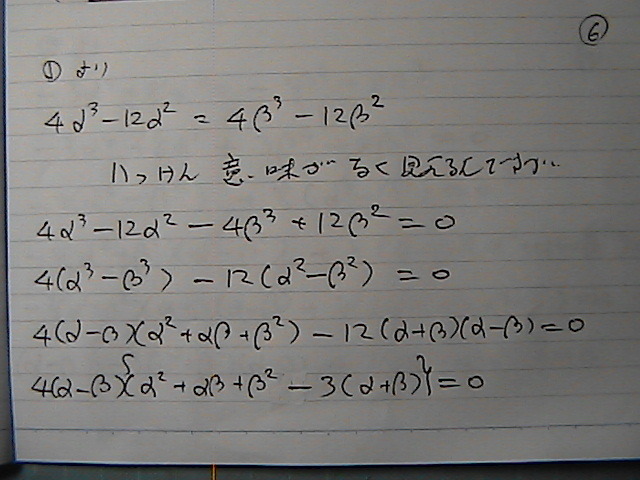 ⑥
① より
4α³ - 12α² = 4β³ - 12β²
いっけん 意味がなく見えるんですが…
4α³ - 12α² - 4β³ + 12β² = 0
4(α³ - β³) - 12(α² - β²) = 0
4(α - β)(α² + αβ + β²) - 12(α + β)(α - β) = 0
4(α - β){α² + αβ + β² - 3(α + β)} = 0